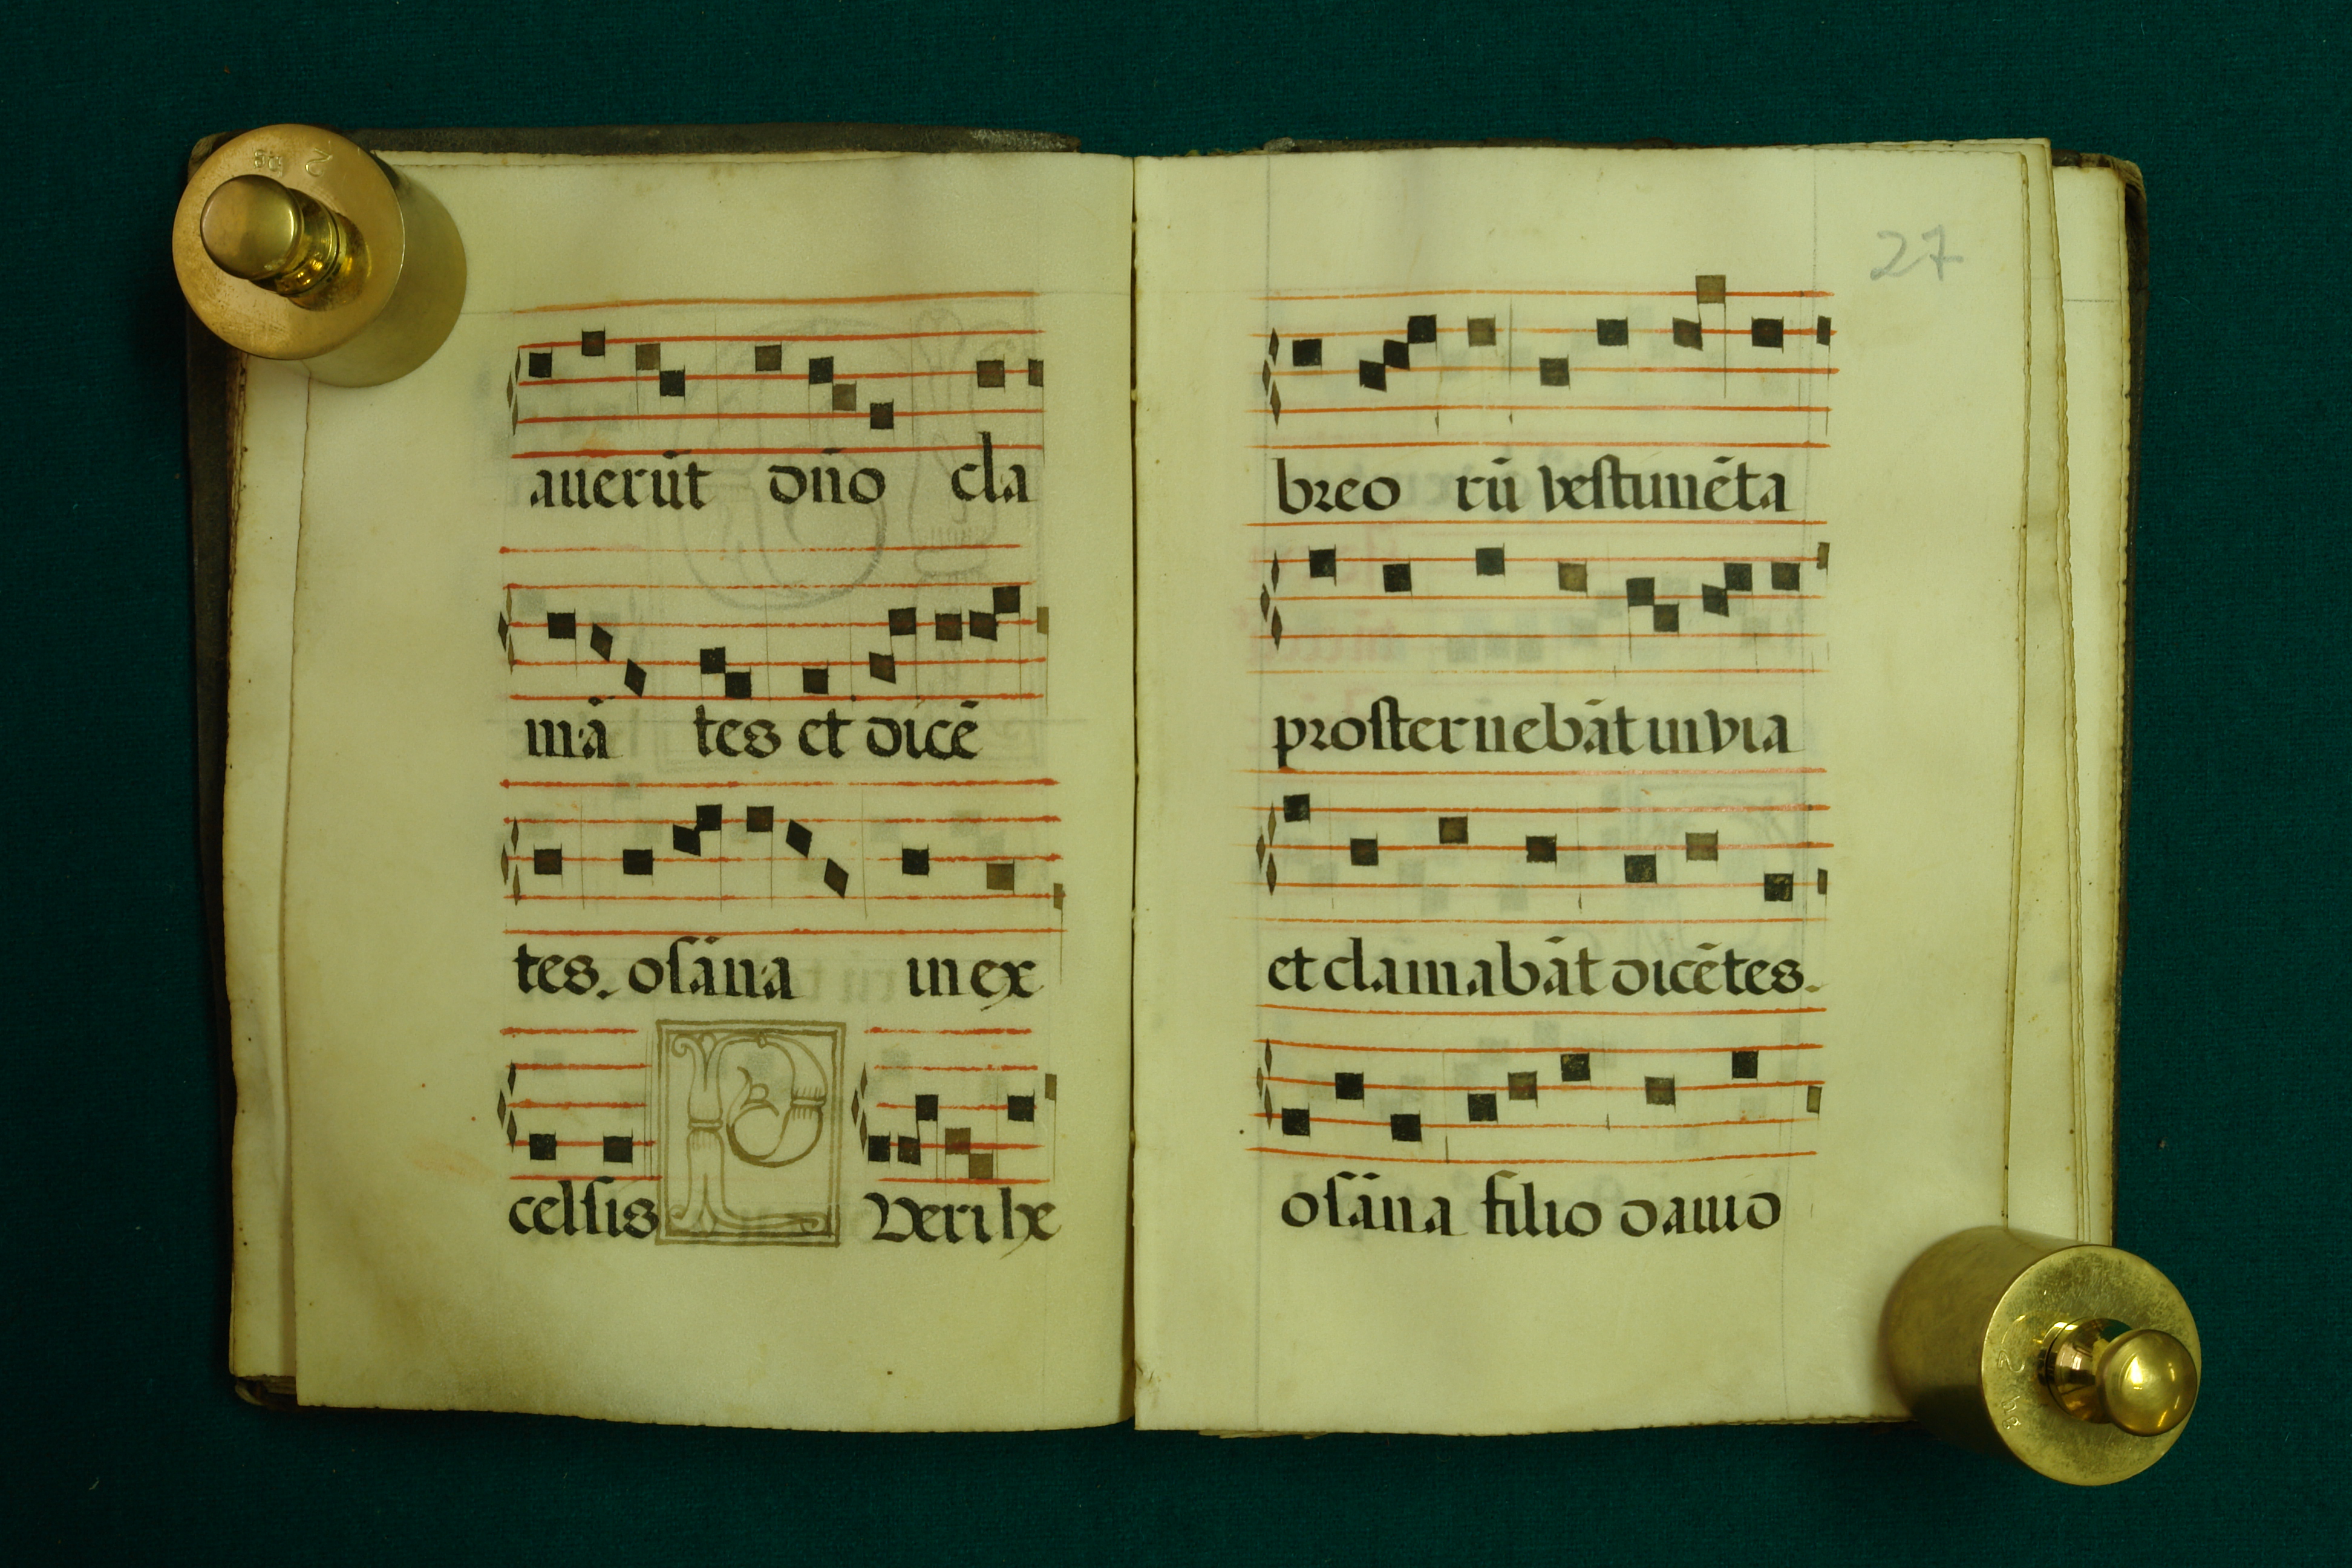 auerūt dn̄o cla
mā tes et dicē
tes. osāna in ex
celsis P Veri he
27
breo rū vestimēta
prosternebāt in via
et clamabāt dicētes.
osāna filio dauid